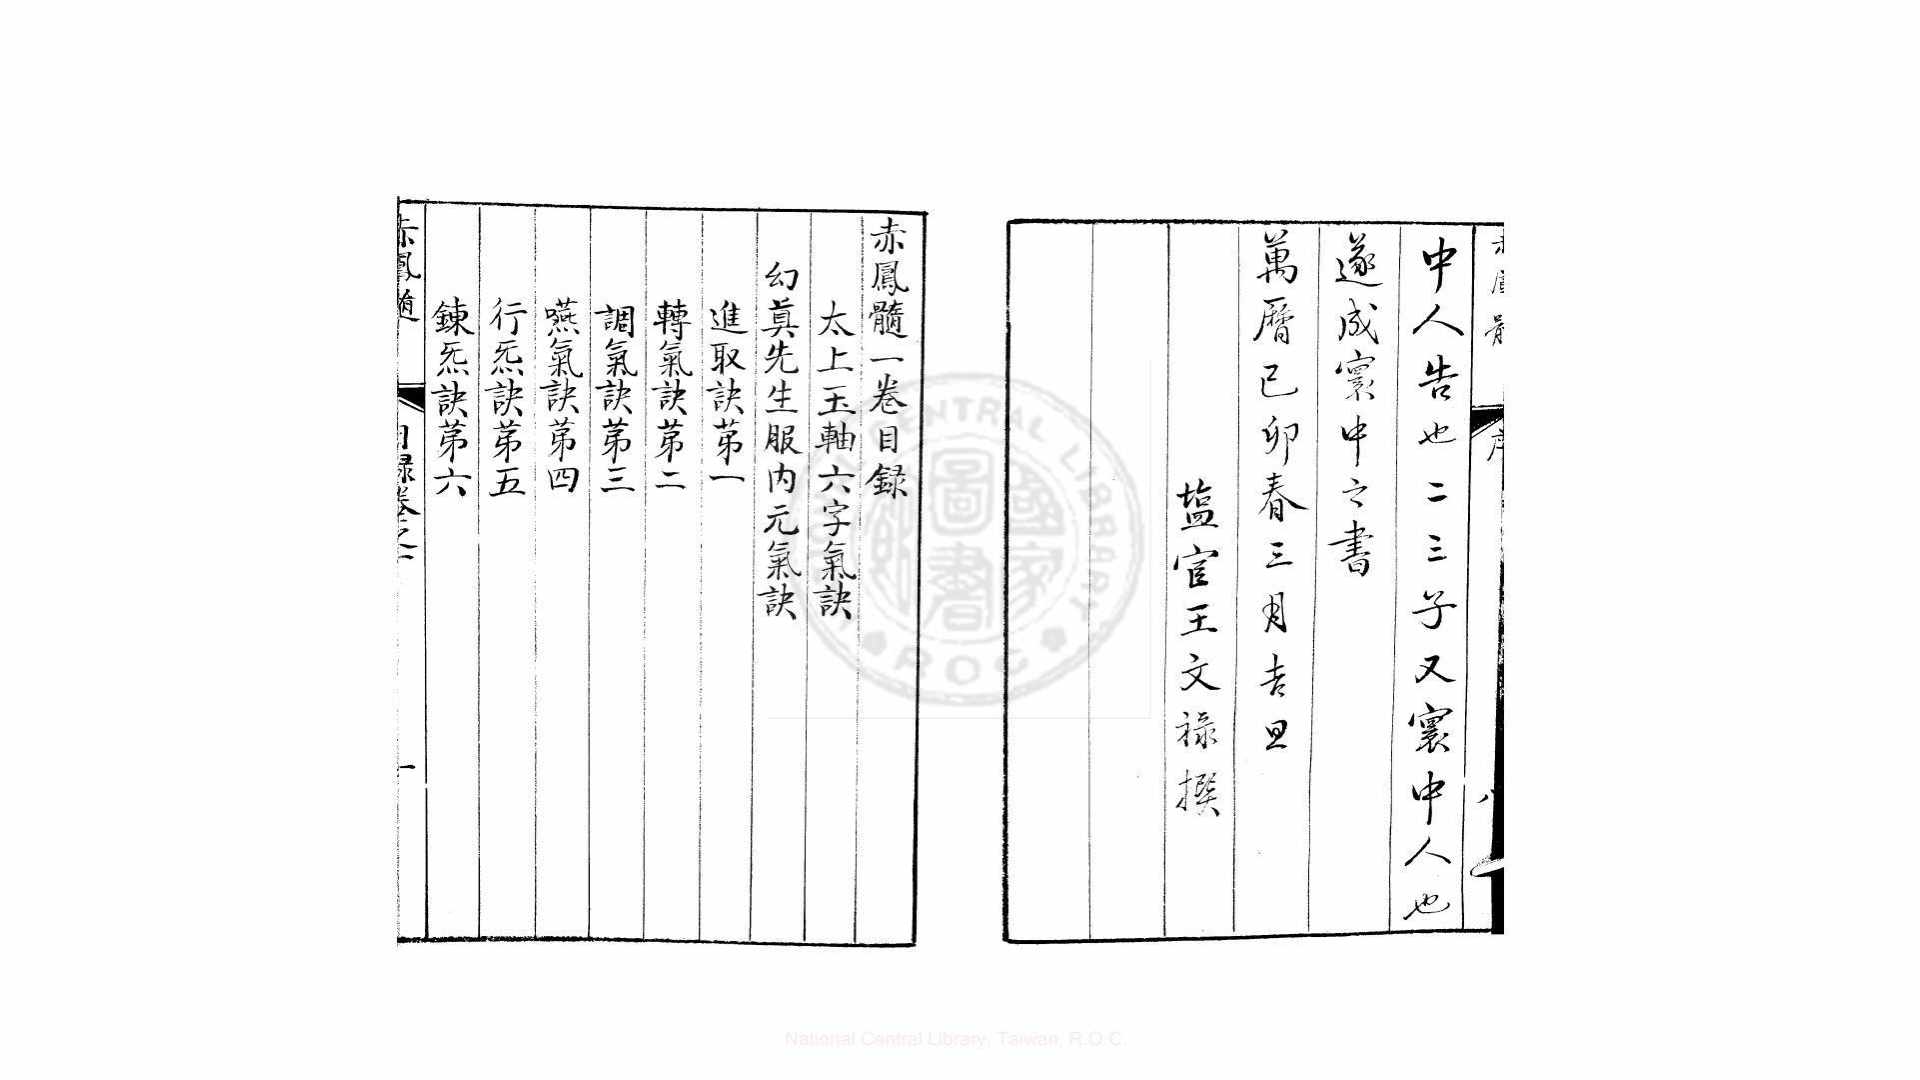 中人告也二三子又寰中人也
遂成寰中之書
萬曆己卯春三月吉旦
塩官王文祿撰
赤鳳髓一卷目録
太上玉軸六字氣訣
幻眞先生服内元氣訣
進取訣苐一
轉氣訣苐二
調氣訣苐三
嚥氣訣苐四
行炁訣苐五
鍊炁訣苐六
赤鳳髓
目録卷之一
一
National Central Library, Taiwan, R.O.C.
NATIONAL CENTRAL LIBRARY
ROC
國家圖書館